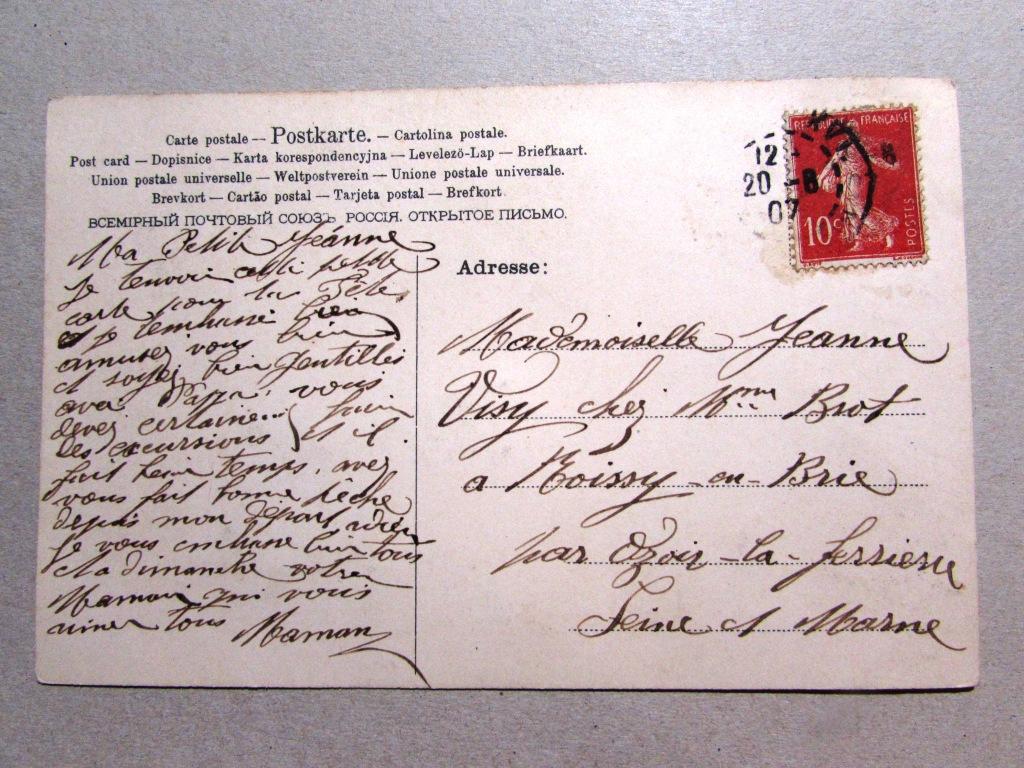 Carte postale — Postkarte. — Cartolina postale.
Post card — Dopisnice — Karta korespondencyjna — Levelezö-Lap — Briefkaart.
Union postale universelle — Weltpostverein — Unione postale universale.
Brevkort — Cartão postal — Tarjeta postal — Brefkort.
ВСЕМІРНЫЙ ПОЧТОВЫЙ СОЮЗЪ РОССІЯ. ОТКРЫТОЕ ПИСЬМО.
Ma Petite Jeanne
Je tenvoi cette petite
carte pour ta Fête,
et je tembrasse bien
amusez vous bien
et soyez bien gentilles
avec Papa, vous
devez certainement faire
des excursions et il
fait beau temps, avez
vous fait bonne pêche
depuis mon départ, adieu
Je vous embrasse bien tous
et a dimanche votre
Maman qui vous
aime tous Maman
Adresse:
Mademoiselle Jeanne
Visy chez Mme Brot
a Roissy-en-Brie
par Ozoir-la-ferriere
Seine et Marne
REPUBLIQUE FRANÇAISE
10c
POSTES
12
20 -8
07